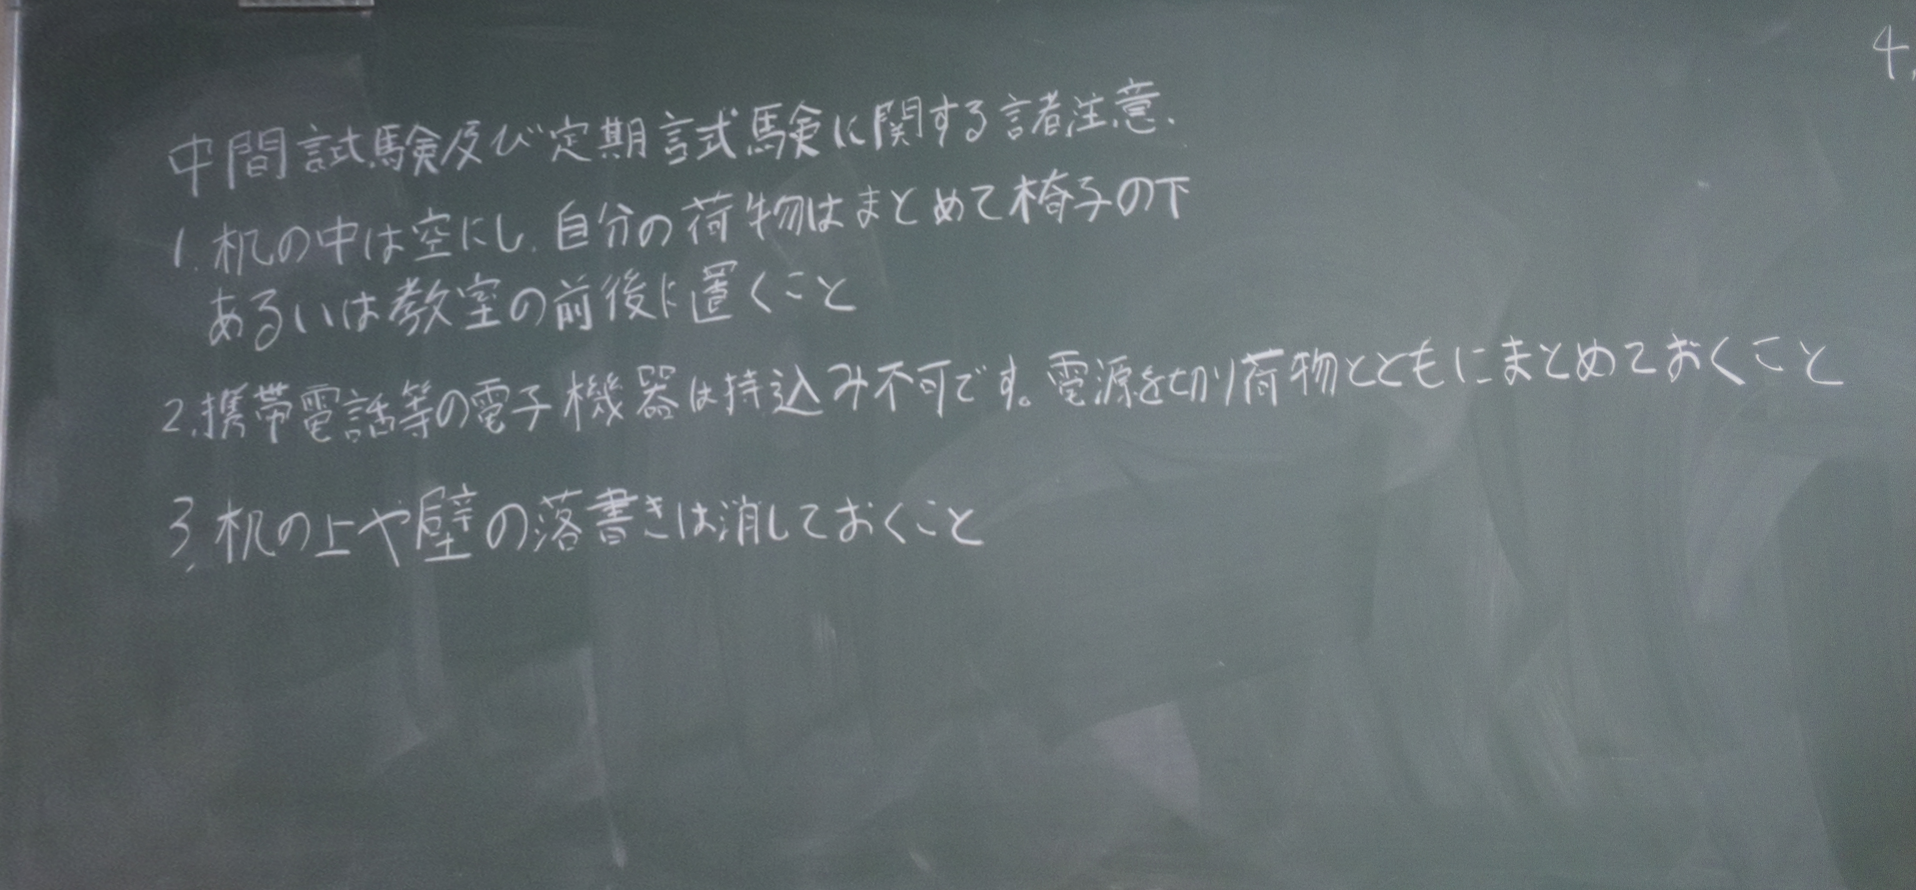 中間試験及び定期試験に関する諸注意.
1. 机の中は空にし、自分の荷物はまとめて椅子の下
あるいは教室の前後に置くこと
2. 携帯電話等の電子機器は持込み不可です。電源を切り荷物とともにまとめておくこと
3. 机の上や壁の落書きは消しておくこと
4.